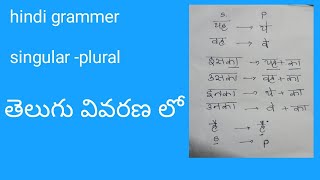 hindi grammer
singular -plural
తెలుగు వివరణ లో
S. P
यह → ये
वह → वे
इसका → यह + का
उसका → वह + का
इनका → ये + का
उनका → वे + का
है → हैं
S → P